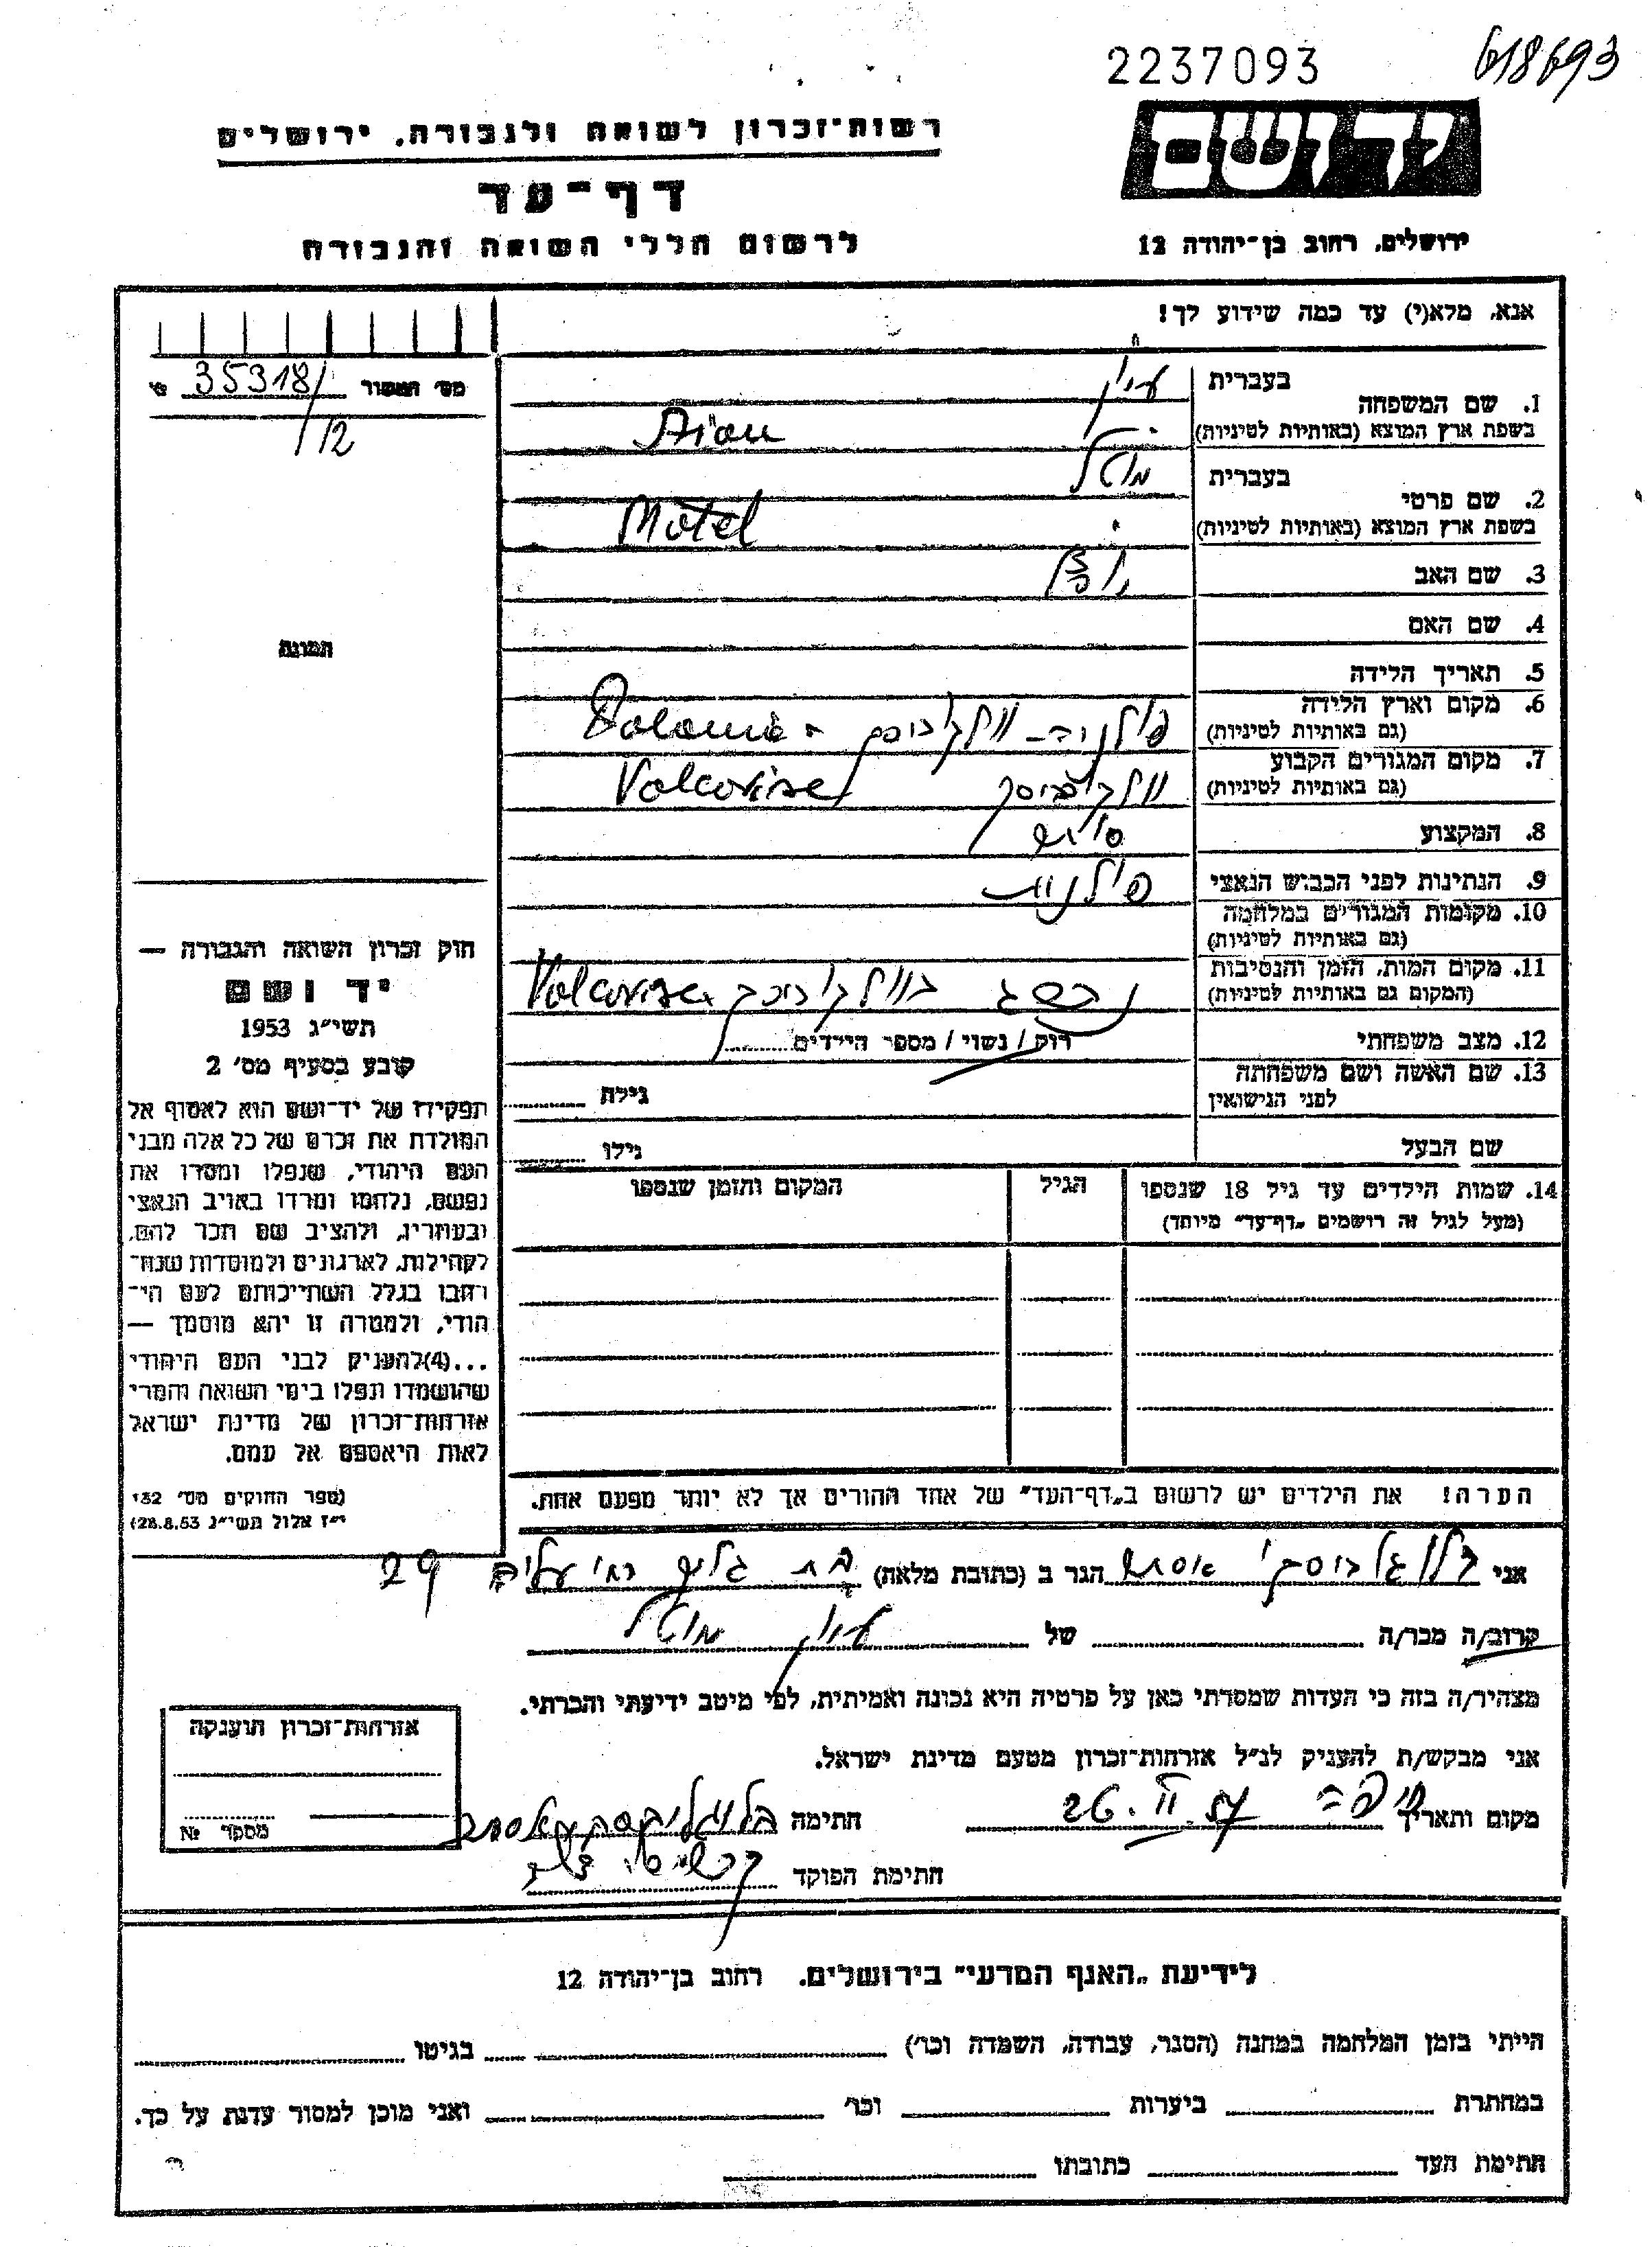 2237093
618693
יד ושם
ירושלים, רחוב בן-יהודה 12
רשות-זכרון לשואה ולגבורה, ירושלים
דף-עד
לרשום חללי השואה והגבורה
אנא, מלא(י) עד כמה שידוע לך!
מס׳ 35318/
12
תמונה
1. שם המשפחה
בעברית
בשפת ארץ המוצא (באותיות לטיניות)
2. שם פרטי
בעברית מוטל
בשפת ארץ המוצא (באותיות לטיניות) Motel
3. שם האב
4. שם האם
5. תאריך הלידה
6. מקום וארץ הלידה
(גם באותיות לטיניות)
7. מקום המגורים הקבוע
(גם באותיות לטיניות)
8. המקצוע
9. הנתינות לפני הכבוש הנאצי פולנית
10. מקומות המגורים במלחמה
(גם באותיות לטיניות)
11. מקום המות, הזמן והנסיבות
(המקום גם באותיות לטיניות)
12. מצב משפחתי רוק / נשוי / מספר הילדים
13. שם האשה ושם משפחתה
לפני הנישואין
גילה
שם הבעל
גילו
14. שמות הילדים עד גיל 18 שנספו
(מעל לגיל זה רושמים „דף-עד” מיוחד)
הגיל
המקום והזמן שנספו
הערה! את הילדים יש לרשום ב„דף-העד” של אחד ההורים אך לא יותר מפעם אחת.
חוק זכרון השואה והגבורה —
יד ושם
תשי״ג 1953
קובע בסעיף מס׳ 2
תפקידו של יד-ושם הוא לאסוף אל
המולדת את זכרם של כל אלה מבני
העם היהודי, שנפלו ומסרו את
נפשם, נלחמו ומרדו באויב הנאצי
ובעוזריו, ולהציב שם וזכר להם,
לקהילות, לארגונים ולמוסדות שנח-
רבו בגלל השתייכותם לעם הי-
הודי, ולמטרה זו יהא מוסמך —
...(4)להעניק לבני העם היהודי
שהושמדו ונפלו בימי השואה והמרי
אזרחות-זכרון של מדינת ישראל
לאות היאספם אל עמם.
(ספר החוקים מס׳ 132
י״ז אלול תשי״ג 28.8.53)
אני
הגר ב (כתובת מלאה) בת גלים 29
קרוב/ה מכר/ה של מוטל
מצהיר/ה בזה כי העדות שמסרתי כאן על פרטיה היא נכונה ואמיתית, לפי מיטב ידיעתי והכרתי.
אני מבקש/ת להעניק לנ״ל אזרחות-זכרון מטעם מדינת ישראל.
מקום ותאריך חיפה 26.II.57 חתימה
חתימת הפוקד
אזרחות-זכרון תוענקה
מספר №
לידיעת „האגף המדעי” בירושלים. רחוב בן-יהודה 12
הייתי בזמן המלחמה במחנה (הסגר, עבודה, השמדה וכו׳) בגיטו
במחתרת ביערות וכו׳ ואני מוכן למסור עדות על כך.
חתימת העד כתובתו